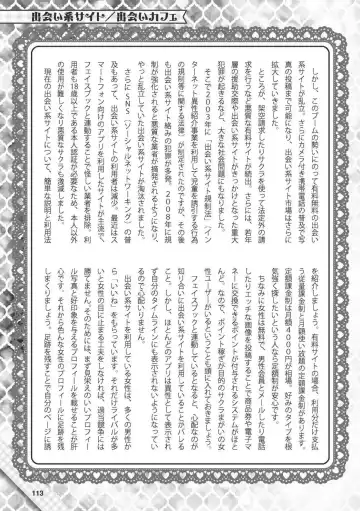 出会い系サイト／出会いカフェ
しかし、このブームの勢いにのって有料無料の出会い
系サイトが乱立、さらにカメラ付き携帯電話の普及で写
真の投稿まで可能になり、出会い系サイト市場はさらに
拡大していきました。
ところが、架空請求したりサクラを使って法定外の請
求を行うなど悪質な有料サイトが続出、さらには、若年
層の援助交際や出会い系サイトがきっかけとなった重大
犯罪が起きるなど、大きな社会問題にもなりました。
そこで2003年に「出会い系サイト規制法」／「イン
ターネット異性紹介事業を利用して児童を誘引する行為
の規制等に関する法律」が制定されたのですが、その後
も出会い系サイト絡みの犯罪が多発。2008年に規
制が強化されると悪質な業者が摘発されるようになり、
やっと乱立していた出会い系サイトが淘汰されました。
さらにSNS（ソーシャルネットワーキング）の普
及もあって、出会い系サイトの利用者は減少。最近はス
マートフォン向けのアプリを利用したサイトが主流で、
フェイスブックと連動することで怪しい業者を排除、利
用者も18歳以上である本人認証が必要なため、本人以外
の使用が難しくなり悪質なサクラも激減しました。
現在の出会い系サイトについて、簡単な説明と利用法
を紹介しましょう。有料サイトの場合、利用分だけ支払
う従量課金制と月額使い放題の定額課金制があります。
定額課金制は月額4000円が相場。好みのタイプを根
気強く探したいという人なら定額制が安心です。
ちなみに女性は無料で、男性会員とメールしたり電話
したりエッチな画像を投稿することで商品券や電子マ
ネーに交換できるポイントが付与されるシステムがほと
んど。なので、ポイント稼ぎが目的のサクラまがいの女
性ユーザーがいるということも頭に入れておきましょう。
フェイスブックと連動しているとなると、心配なのが
知り合いに出会い系サイトを利用していることがバレる
こと。しかし、ほとんどのアプリは異性として表示され
ず自分のタイムラインなどにも表示されないようになって
いるので心配りません。
出会い系サイトを利用している女性は、多くの男性か
ら「いいね」をもらっています。それだけライバルが多
いと女性の目に止まる工夫をしなければ、過当競争には
勝てません。そのためには、まず見栄えのいいプロフィー
ル写真と好印象を与えるプロフィールを載せることが肝
心です。それから色んな女性のプロフィールに足跡を残
しまくりましょう。足跡を残すことで自分のページに誘
113